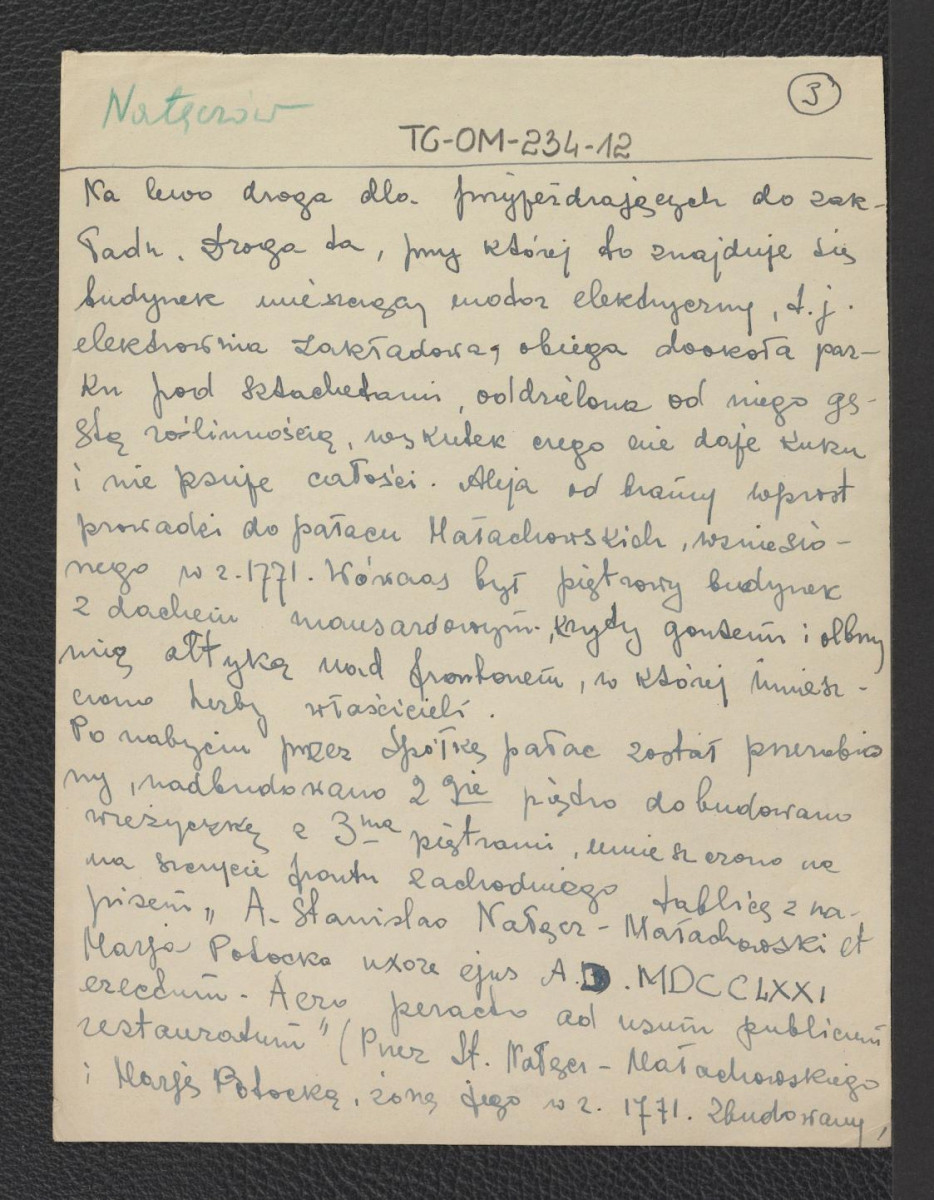 Nałęczów
3
TG-OM-234-12
Na lewo droga dla przyjeżdzających do zak-
ładu. Droga ta, przy której to znajduje się
budynek mieszczący motor elektryczny, t.j.
elektrownia zakładowa, obiega dookoła par-
ku pod sztachetami, oddzielona od niego gę-
stą roślinnością, wskutek czego nie daje kurzu
i nie psuje całości. Aleja od bramy wprost
prowadzi do pałacu Małachowskich, wzniesio-
nego w r. 1771. Wówczas był piętrowy budynek
z dachem mansardowym, kryty gontem i olbrzy
mią attyką nad frontonem, w której umiesz-
czono herby właścicieli.
Po nabyciu przez Spółkę pałac został przerobio
ny, nadbudowano 2gie piętro dobudowano
wieżyczkę z 3ma piętrami, umieszczono na
na szczycie frontu zachodniego tablicę z na-
pisem „A. Stanislao Nałęcz-Małachowski et
Marja Potocka uxore ejus A.D. MDCCLXXI
erectum. Aero peracto ad usum publicum
restauratum" (Przez St. Nałęcz-Małachowskiego
i Marję Potocką, żonę jego w r. 1771. zbudowany,